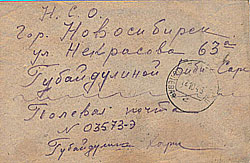 Н. С. О.
гор. Новосибирск.
ул. Некрасова 63а
Губайдулиной Биби-Саре
Полевая почта
N 03573-Э
Губайдулин